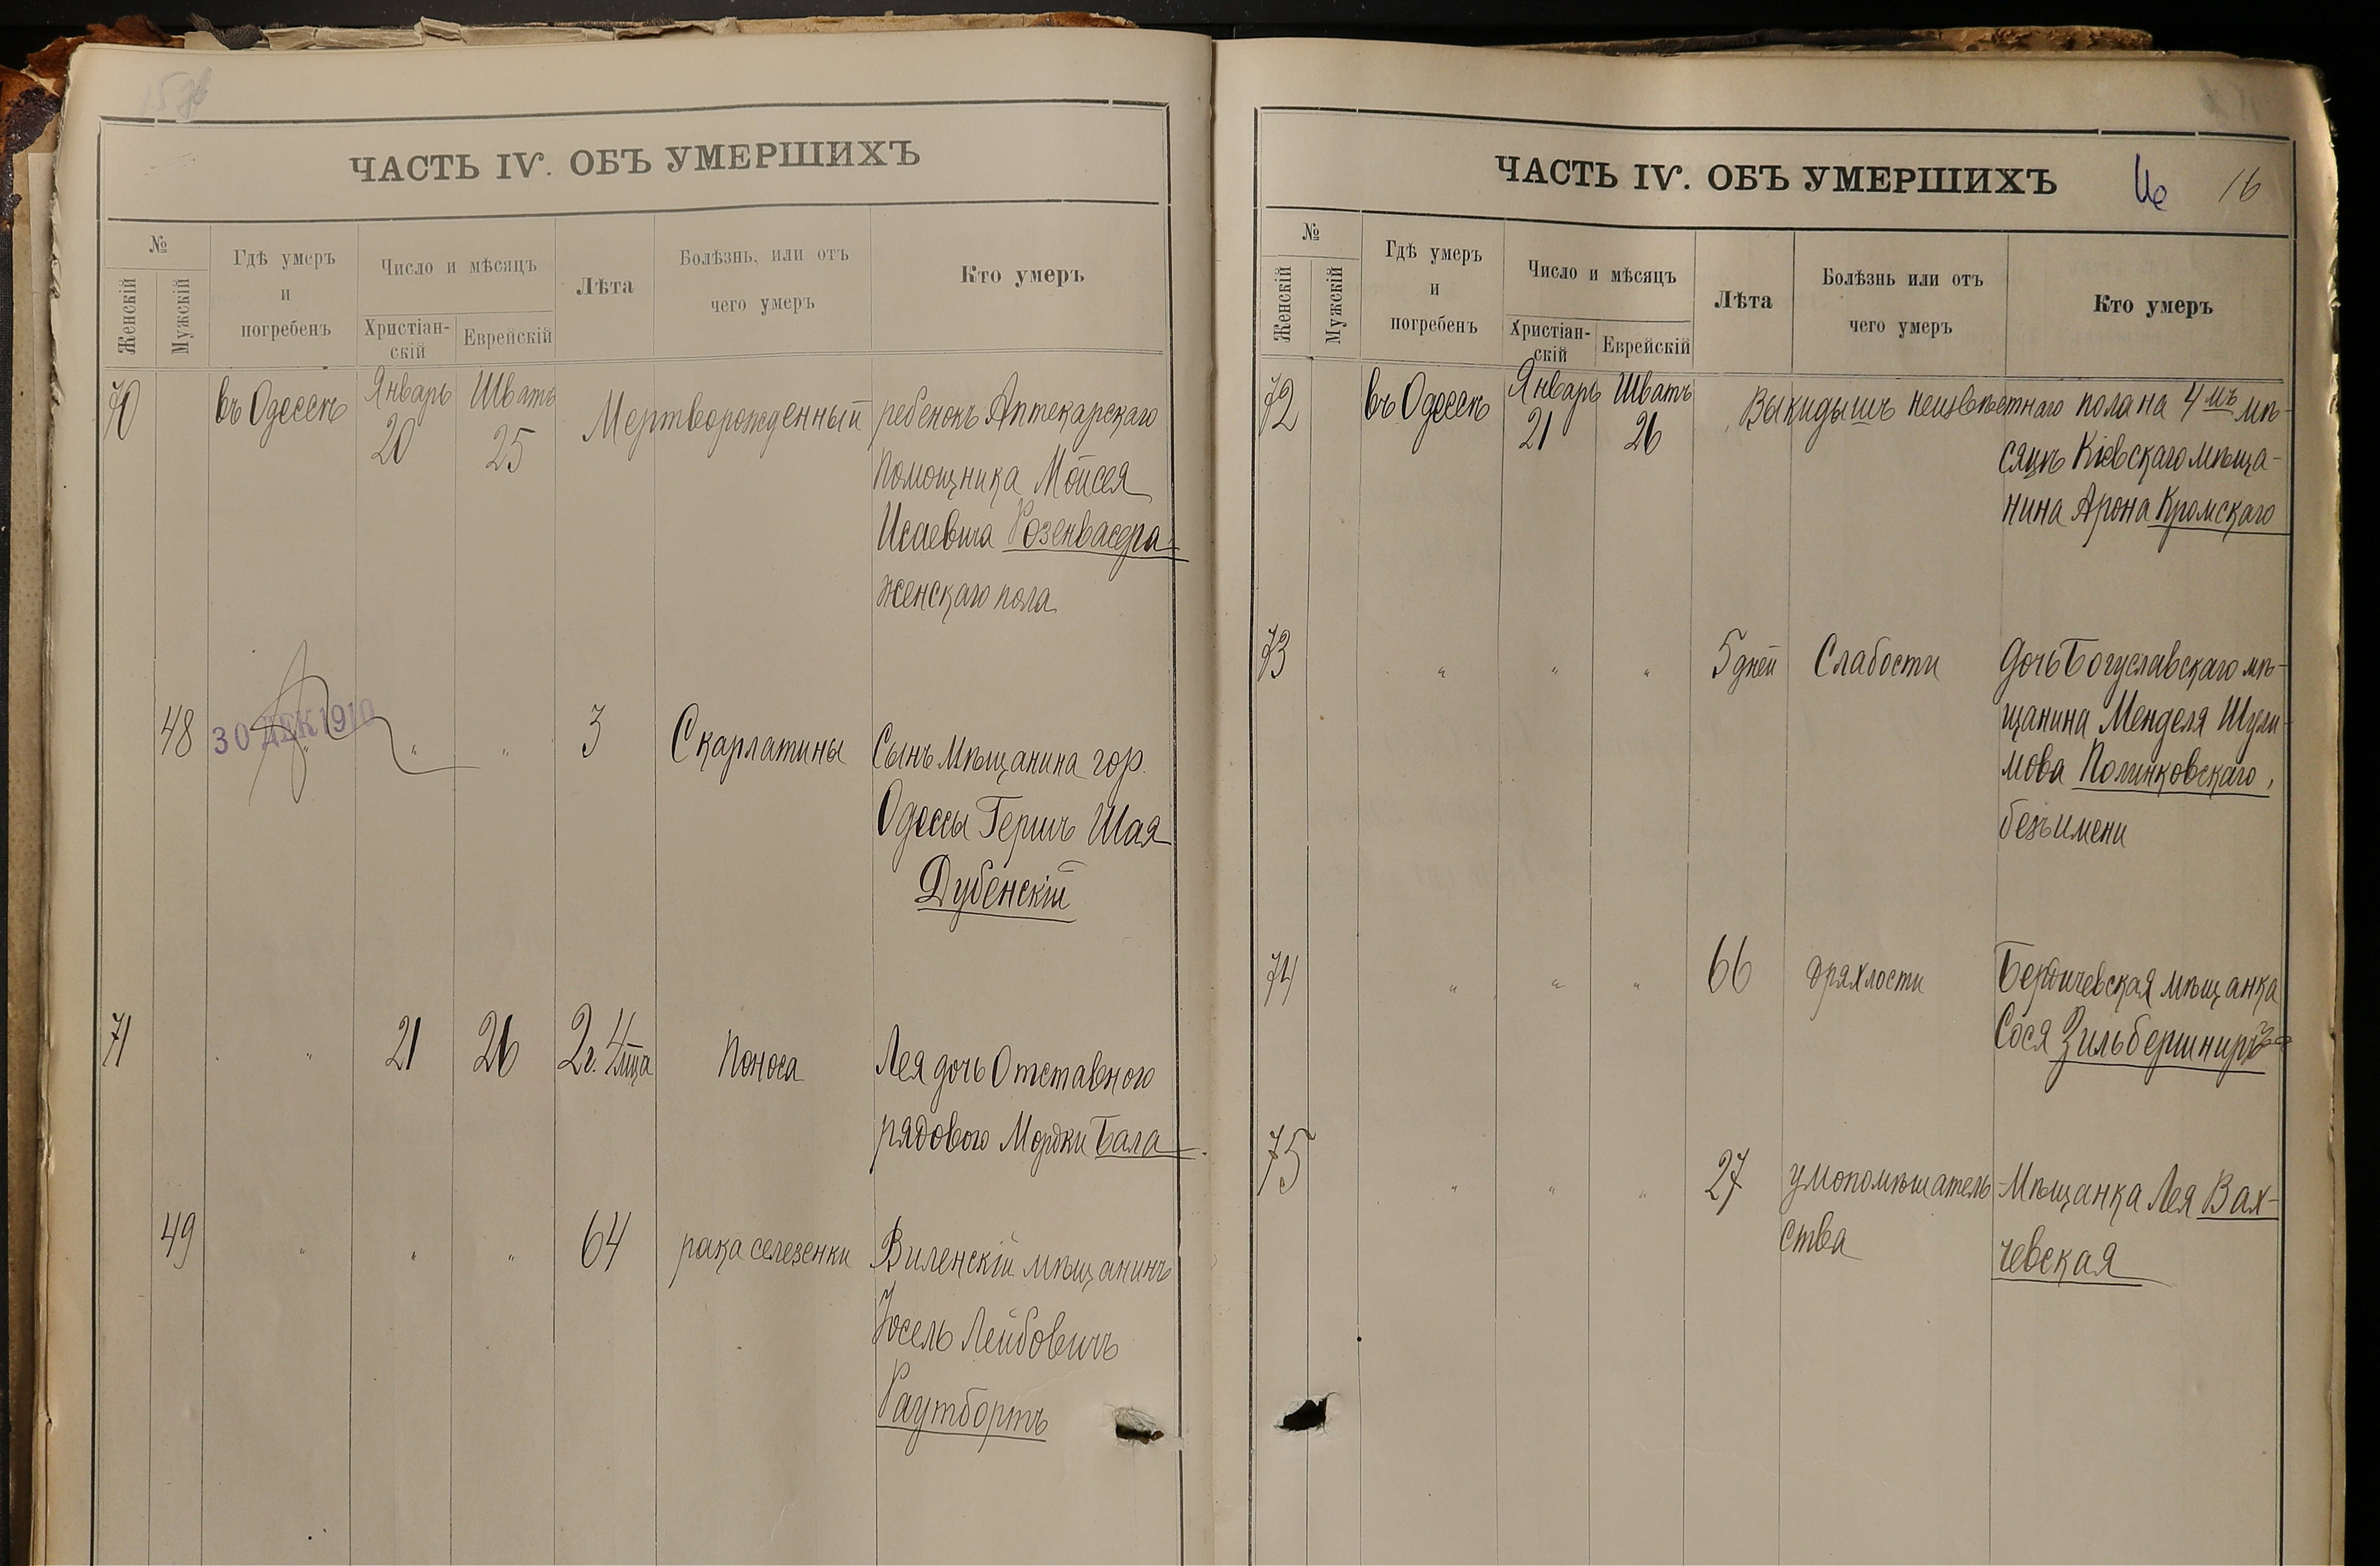 ЧАСТЬ IV. ОБЪ УМЕРШИХЪ
№
Женскій
Мужскій
Гдѣ умеръ
и
погребенъ
Число и мѣсяцъ
Христіан-
скій
Еврейскій
Лѣта
Болѣзнь, или отъ
чего умеръ
Кто умеръ
70 въ Одессѣ Январь 20 Шватъ 25 Мертворожденный ребенокъ Аптекарскаго
помощника Мойсея
Исаевича Розенвасера
женскаго пола
48 " " " 3 Скарлатины Сынъ мѣщанина гор.
30 ДЕК 1910
Одессы Гершъ Шая
Дубенскій
71 " 21 26 2 г. 4 мца Поноса Лея дочь Отставного
рядового Мордки Бала
49 " " " 64 рака селезенки Виленскій мѣщанинъ
Іосель Лейбовичъ
Раутбортъ
ЧАСТЬ IV. ОБЪ УМЕРШИХЪ
16
№
Женскій
Мужскій
Гдѣ умеръ
и
погребенъ
Число и мѣсяцъ
Христіан-
скій
Еврейскій
Лѣта
Болѣзнь или отъ
чего умеръ
Кто умеръ
72 въ Одессѣ Январь 21 Шватъ 26 Выкидышъ неизвѣстнаго пола на 4мъ мѣ-
сяцѣ Кіевскаго мѣща-
нина Арона Кромскаго
73 " " " 5 дней Слабости дочь Богуславскаго мѣ-
щанина Менделя Шули-
мова Полинковскаго,
безъ имени
74 " " " 66 дряхлости Бердичевская мѣщанка
Сося
75 " " " 27 умопомѣшатель- Мѣщанка Лея Вах-
ства чевская